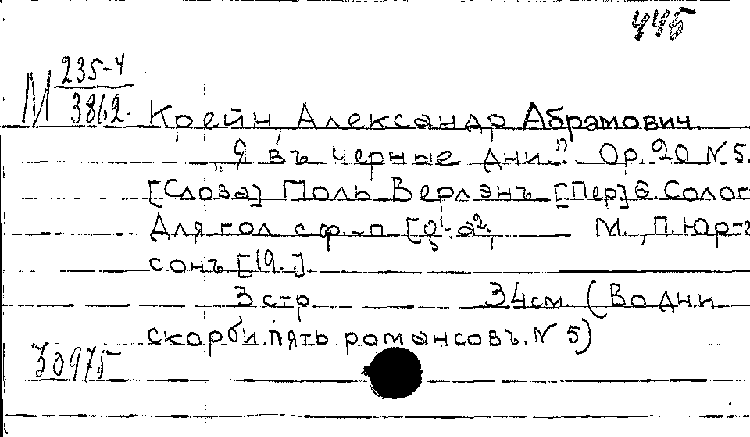 445
М 235-4
3862.
Крейн, Александр Абрамович.
"Я въ черные дни." Ор. 20 N 5.
[Слова] Поль Верлэнъ [Пер] Ѳ. Солог
Для гол с ф-п [ M., П. Юр-г
сонъ [19..].
3 стр. 34 см (Во дни
скорби. пять романсовъ. N 5)
30975